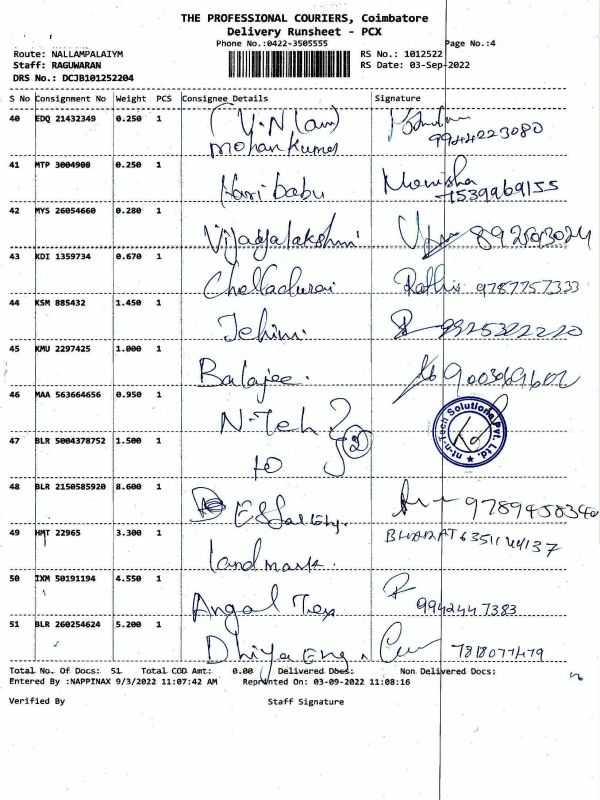 THE PROFESSIONAL COURIERS, Coimbatore
Delivery Runsheet - PCX
Phone No.:0422-3505555 Page No.:4
Route: NALLAMPALAIYM RS No.: 1012522
Staff: RAGUWARAN RS Date: 03-Sep-2022
DRS No.: DCJB101252204
S No Consignment No Weight PCS Consignee Details Signature
40 EDQ 21432349 0.250 1
9944223080
Mohan Kumar
41 MTP 3004908 0.250 1
Hari babu Monisha
7539969155
42 MYS 26054660 0.280 1
Vijayalakshmi
43 KDI 1359734 0.670 1
Chelladurai 9787757333
44 KSM 885432 1.450 1
45 KMU 2297425 1.000 1
Balajee.
46 MAA 563664656 0.950 1
N-Teh 2
47 BLR 5004378752 1.500 1
to
nt-n-Tech Solutions Pvt. Ltd.
48 BLR 2150585920 8.600 1
49 HMT 22965 3.300 1
BHARAT 6351144137
Landmark.
50 IXM 50191194 4.550 1
Angal Tex 9942447383
51 BLR 260254624 5.200 1
Dhiya Eng. 7818077479
Total No. Of Docs: 51 Total COD Amt: 0.00 Delivered Docs: Non Delivered Docs:
Entered By :NAPPINAX 9/3/2022 11:07:42 AM Reprinted On: 03-09-2022 11:08:16
Verified By Staff Signature